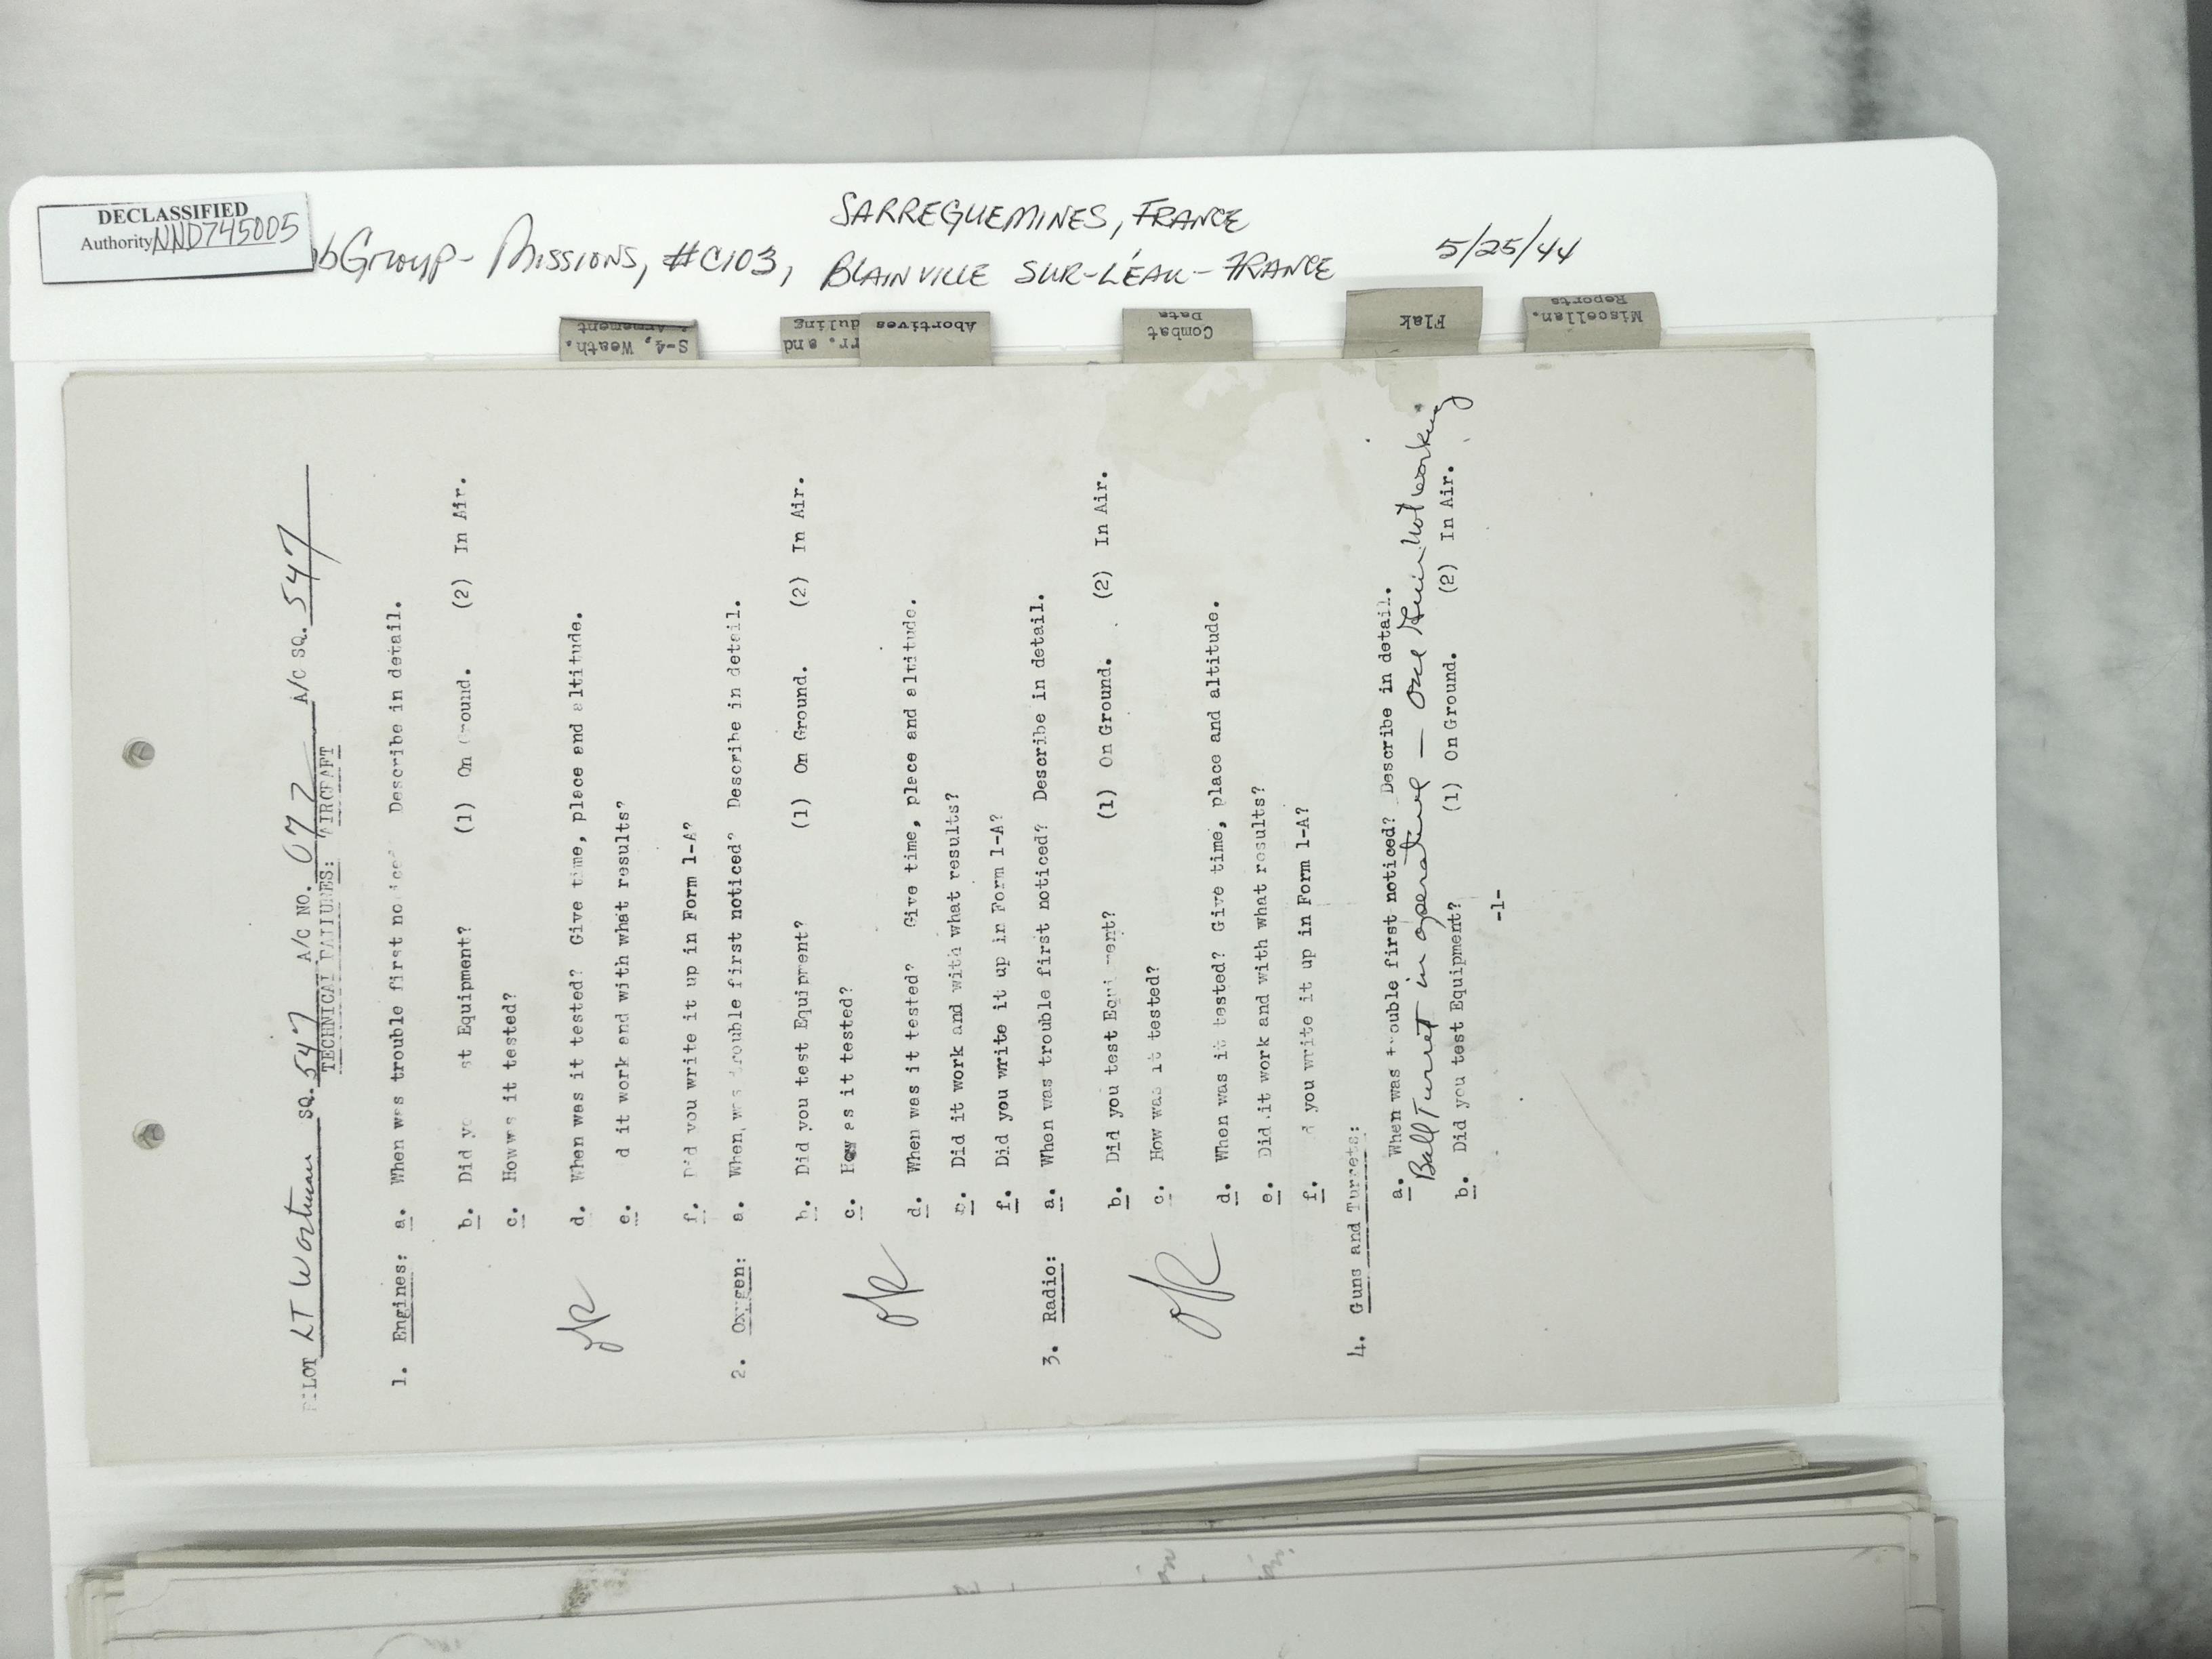 DECLASSIFIED
Authority NND745005
bGroup - Missions, #C103,
SARREGUEMINES, FRANCE
BLAINVILLE SUR-L'ÉAU - FRANCE
5/25/44
S-4, Weath.
Armement
rr. and
duling
Abortives
Combat
Data
Flak
Miscellan.
Reports
PILOT LT Wortman SQ. 547 A/C NO. 072 A/C SQ. 547
TECHNICAL FAILURES: AIRCRAFT
1. Engines: a. When was trouble first noticed Describe in detail.
b. Did yo st Equipment? (1) On Ground. (2) In Air.
c. How was it tested?
d. When was it tested? Give time, place and altitude.
e. d it work and with what results?
f. Did you write it up in Form 1-A?
ok
2. Oxygen: a. When was trouble first noticed? Describe in detail.
b. Did you test Equipment? (1) On Ground. (2) In Air.
c. How as it tested?
d. When was it tested? Give time, place and altitude.
e. Did it work and with what results?
f. Did you write it up in Form 1-A?
ok
3. Radio: a. When was trouble first noticed? Describe in detail.
b. Did you test Equipment? (1) On Ground. (2) In Air.
c. How was it tested?
d. When was it tested? Give time, place and altitude.
e. Did it work and with what results?
f. d you write it up in Form 1-A?
ok
4. Guns and Turrets:
a. When was trouble first noticed? Describe in detail.
Ball Turret in operative — one Gun not working
b. Did you test Equipment? (1) On Ground. (2) In Air.
-1-